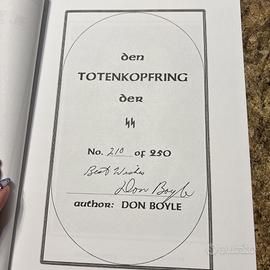 den
TOTENKOPFRING
der
ᛋᛋ
No. 210 of 250
Best Wishes
Don Boyle
author: DON BOYLE